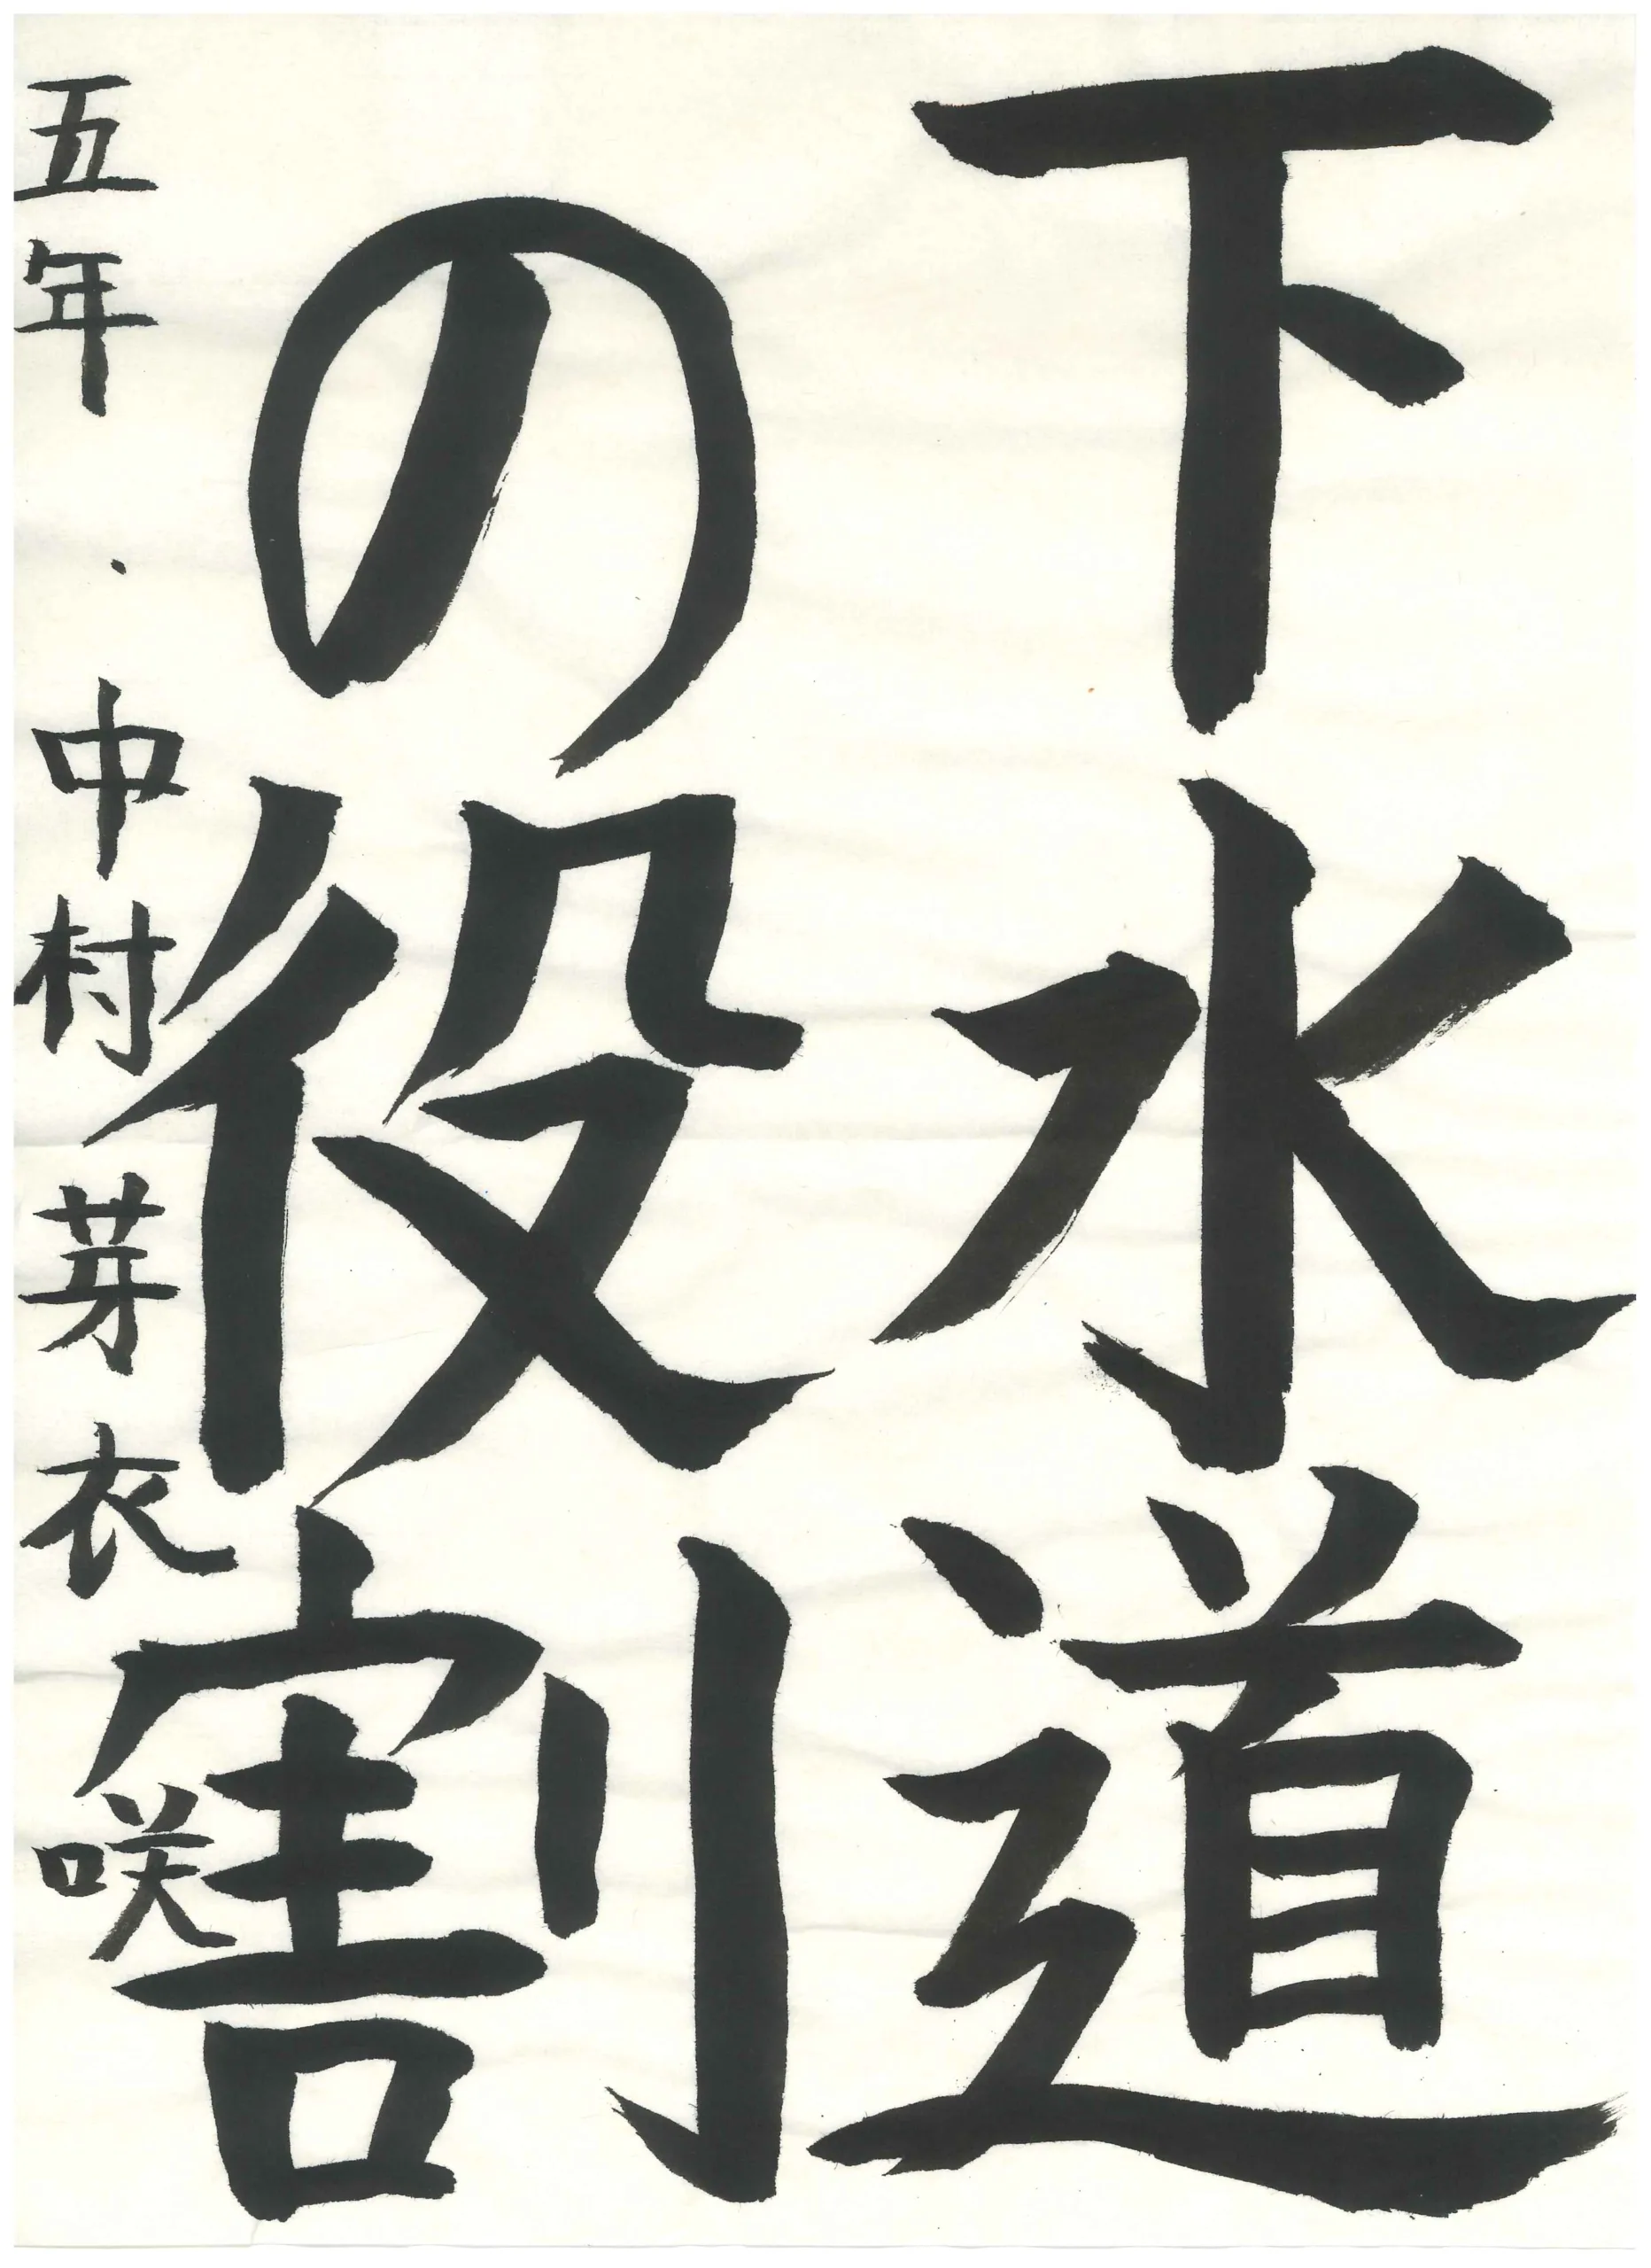 下水道
の役割
五年 中村芽衣咲